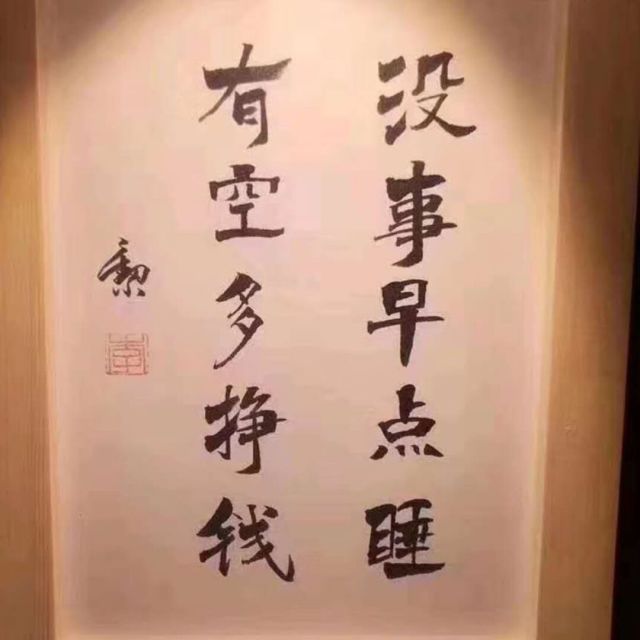 没事早点睡
有空多挣钱